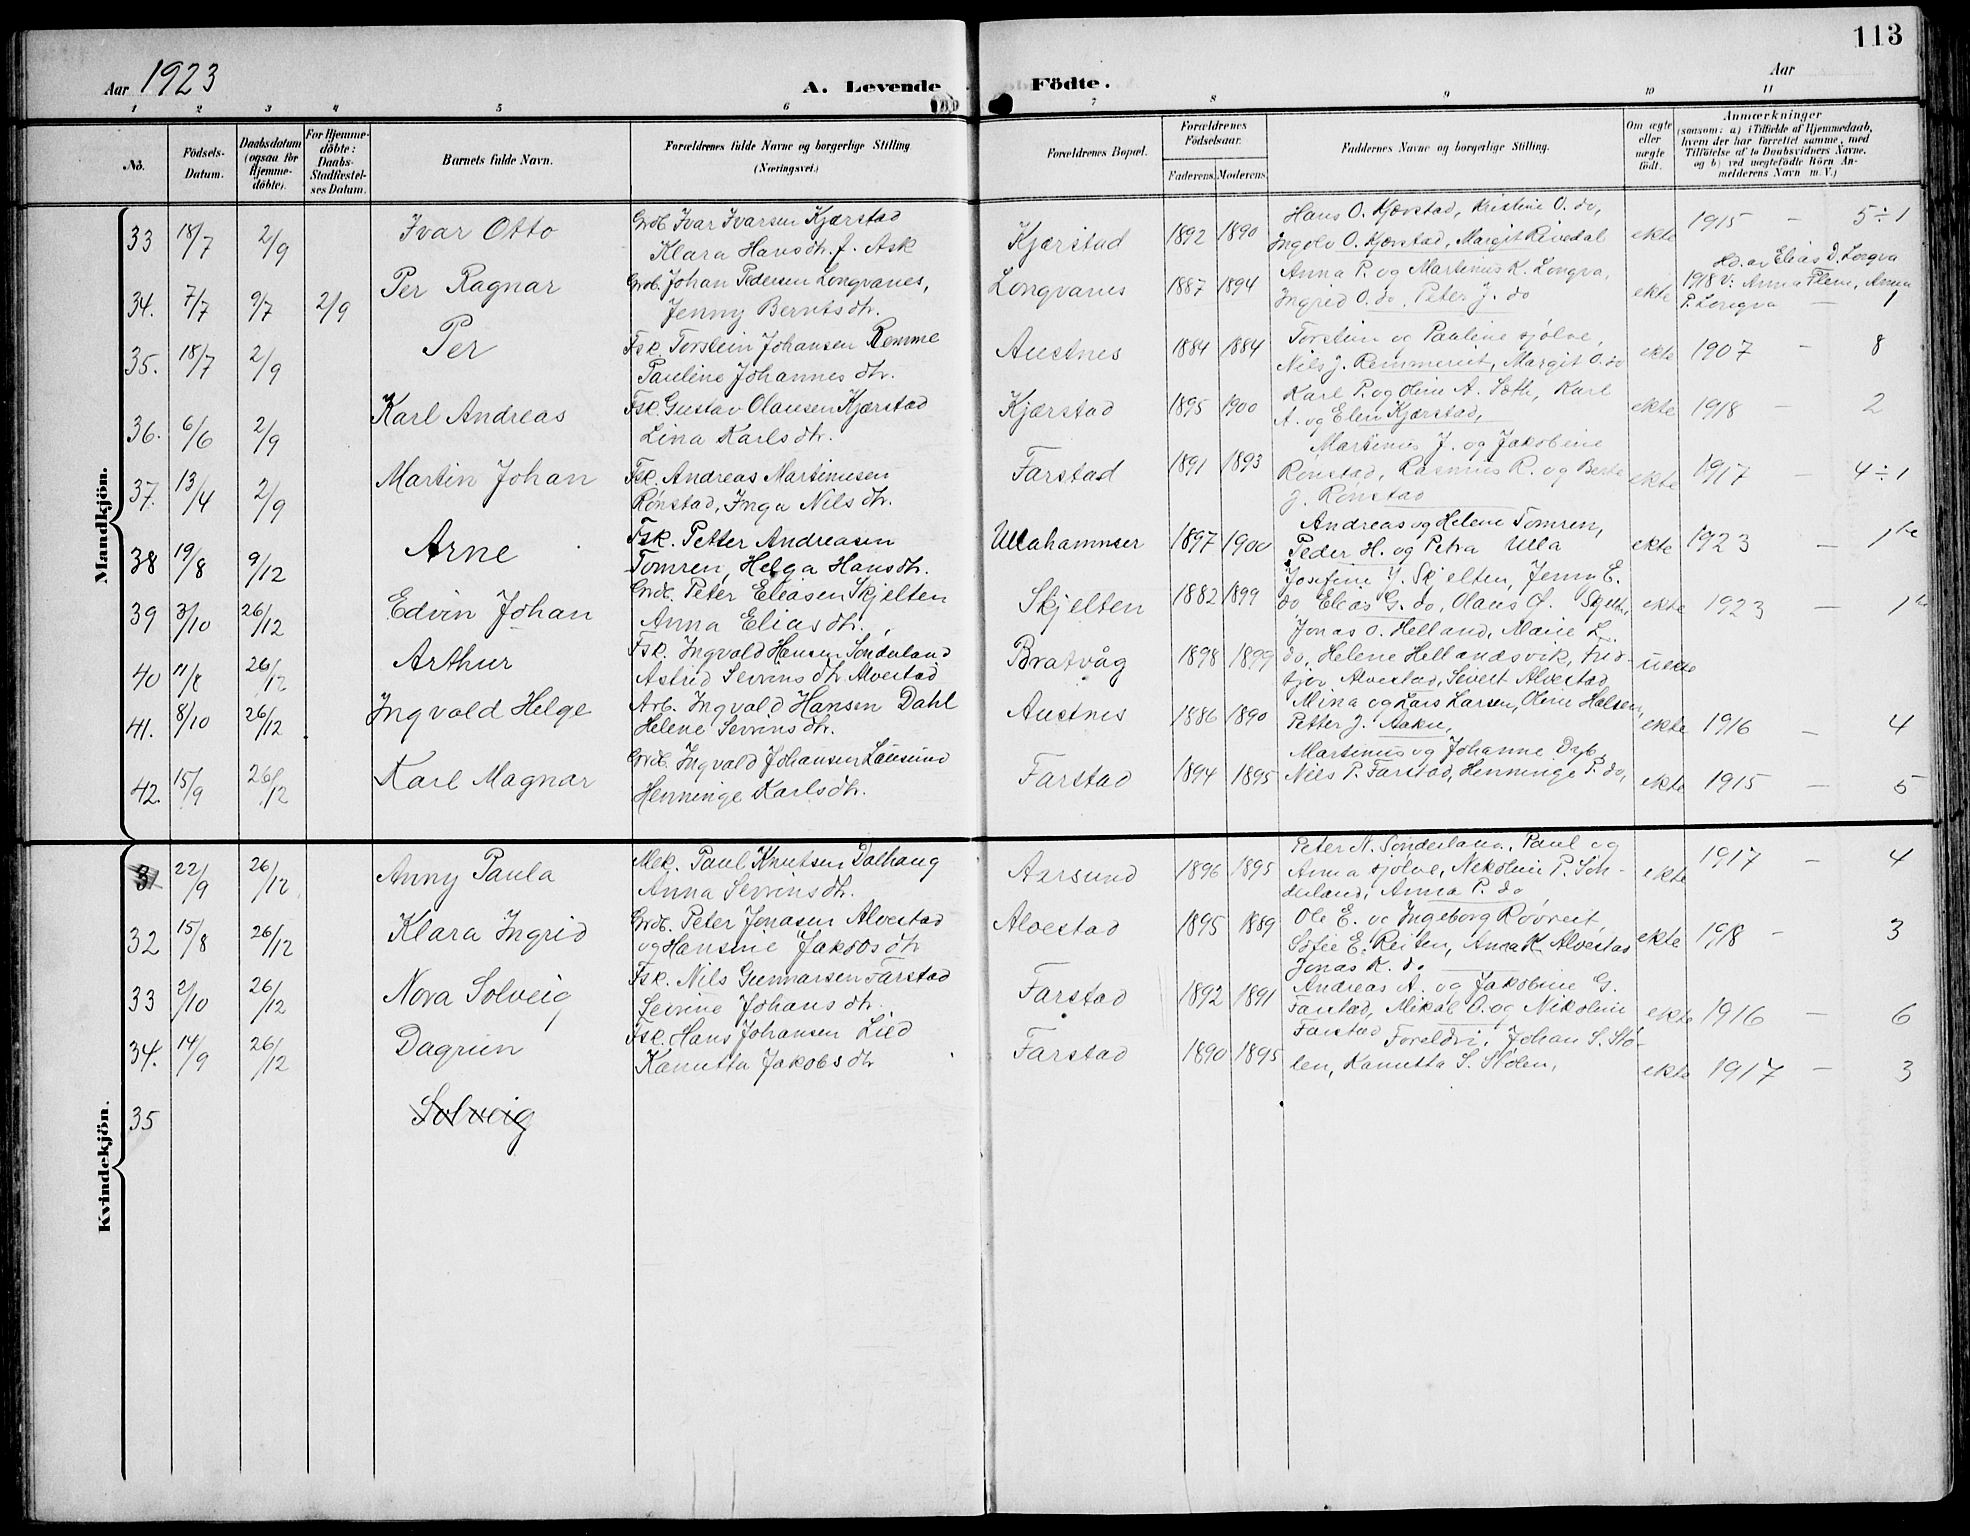 113
Aar 1923
A. Levende Födte.
Aar
1 2 3 4 5 6 7 8 9 10 11
No.
Födsels-Datum.
Daabsdatum (ogsaa for Hjemme-döbte).
For Hjemme-döbte: Daabs-Stadfæstel-ses Datum.
Barnets fulde Navn.
Forældrenes fulde Navne og borgerlige Stilling (Næringsvei.)
Forældrenes Bopæl.
Forældrenes Födselsaar.
Faderens. Moderens.
Faddernes Navne og borgerlige Stilling.
Om ægte eller uægte födt.
Anmærkninger
(saasom: a) i Tilfælde af Hjemmedaab,
hvem der har forrettet samme, med
Tilföielse af to Daabsvidners Navne,
og b) ved uægtefödte Börn An-
melderens Navn m. V.)
Mandkjön.
33 18/7 2/9 Ivar Otto
Grdb. Ivar Ivarsen Kjærstad
Klara Hansdtr. f. Ask
Kjærstad 1892 1890
Hans O. Kjærstad, Kristine O. do,
Ingolv O. Kjærstad, Margit Rivedal
ekte 1915 – 5÷1
34. 7/7 9/7 2/9 Per Ragnar
Grdb. Johan Pedersen Longvanes,
Jenny Berntsdtr.
Longvanes 1887 1894
Anna P. og Martinus K. Longva,
Ingrid O. do, Peter J. do
ekte
Hd. av Elias D. Longva
1918 V: Anna Flem, Anna
P. Longva – 1
35. 18/7 2/9 Per
Fsk. Torstein Johansen Remme
Pauline Johannesdtr.
Austnes 1884 1884
Torstein og Pauline sjølve,
Nils J. Remmereit, Margit O. do
ekte 1907 – 8
36. 6/6 2/9 Karl Andreas
Fsk. Gustav Olausen Kjærstad
Lina Karlsdtr.
Kjærstad 1895 1900
Karl P. og Oline A. Karl
A. og Elen Kjærstad,
ekte 1918 – 2
37. 13/4 2/9 Martin Johan
Fsk. Andreas Martinusen
Rønstad, Inga Nilsdtr.
Farstad 1891 1893
Martinus J. og Jakobine
Rønstad, Rasmus R. og Berte
J. Rønstad
ekte 1917 – 4÷1
38 19/8 9/12 Arne
Fsk. Petter Andreasen
Tomren, Helga Hansdtr.
Ullahammer 1897 1900
Andreas og Helene Tomren,
Peder H. og Petra Ulla
ekte 1923 – 1ste
39 3/10 26/12 Edvin Johan
Grdb. Peter Eliasen Skjelten
Anna Eliasdtr.
Skjelten 1882 1899
Josefine J. Skjelten, Jenny E.
do Elias G. do, Olaus O. Skjelt.
ekte 1923 – 1ste
40 11/8 26/12 Arthur
Fsk. Ingvald Hansen Sønderland
Astrid Sevrinsdtr. Alvestad
Bratvåg 1898 1899
Jonas O. Helland, Marie L.
do, Helene Hellandsvik, Frid-
tjov Alvestad, Severt Alvestad
uekte
41. 8/10 26/12 Ingvald Helge
Arb. Ingvald Hansen Dahl
Helene Sevrinsdtr.
Austnes 1886 1890
Mina og Lars Larsen, Oline Halsen,
Petter J. Aakre,
ekte 1916 – 4
42. 15/9 26/12 Karl Magnar
Grdb. Ingvald Johansen Lausund
Henninge Karlsdtr.
Farstad 1894 1895
Martinus og Johanne Dryb,
Nils P. Farstad, Henninge P. do,
ekte 1915 – 5
Kvindekjön.
31 22/9 26/12 Anny Paula
Mek. Paul Knutsen Dalhaug
Anna Sevrinsdtr.
Aarsund 1896 1895
Peter N. Sønderland, Paul og
Anna sjølve, Nekoline P. Søn-
derland, Anna P. do
ekte 1917 – 4
32 15/8 26/12 Klara Ingrid
Grdb. Peter Jonasen Alvestad
og Hansine Jakobsdtr
Alvestad 1895 1889
Ole E. og Ingeborg Røvreit,
Sofie E. Reiten, Anna K. Alvestad
Jonas K. do
ekte 1918 – 3
33 2/10 26/12 Nora Solveig
Fsk. Nils Gunnarsen Farstad
Sevrine Johansdtr.
Farstad 1892 1891
Andreas A. og Jakobine G.
Farstad, Mikal O. og Nikoline
Farstad
ekte 1916 – 6
34. 14/9 26/12 Dagrun
Fsk. Hans Johansen Lied
Kanutta Jakobsdtr
Farstad 1890 1895
Foreldri, Johan S. Stø-
len, Kanutta S. Stølen,
ekte 1917 – 3
35 Solveig